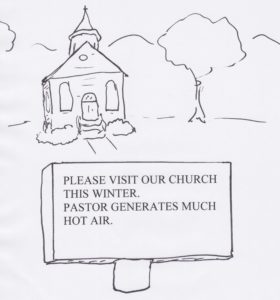 PLEASE VISIT OUR CHURCH
THIS WINTER.
PASTOR GENERATES MUCH
HOT AIR.